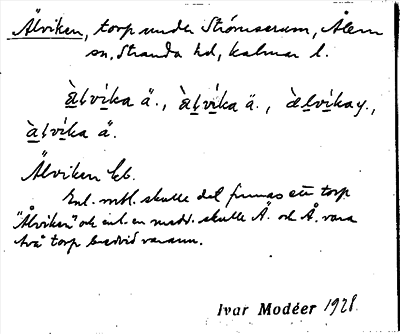 Älviken, torp under Strömserum, Ålem
sn, Stranda hd, Kalmar l.
àlvíka ä., àlvíka ä., àlvíka y.,
àlvíka ä.
Älviken kb.
Enl. mtl. skulle det finnas ett torp
"Ålviken" och enl. en medd. skulle Ä. och Å. vara
två torp bredvid varann.
Ivar Modéer 1928.